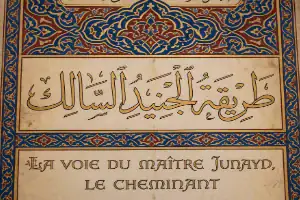 طَرِيقَةُ الْجُنَيْدِ السَّالِكِ
LA VOIE DU MAÎTRE JUNAYD,
LE CHEMINANT